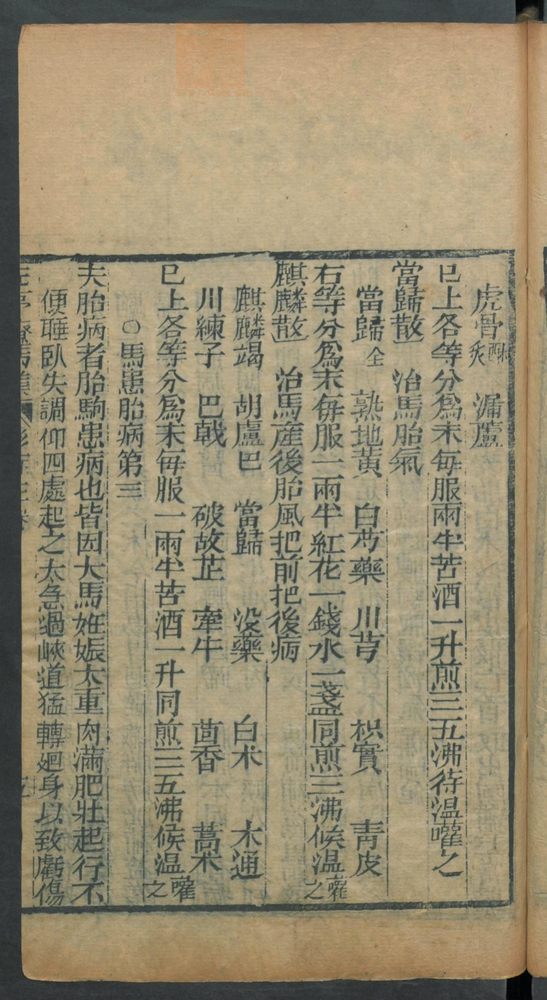 虎骨酥炙 漏蘆
已上各等分為末每服兩半苦酒一升煎三五沸待温嚾之
當歸散 治馬胎氣
當歸全 熟地黃 白芍藥 川芎 枳實 青皮
右等分為末每服一兩半紅花一錢水一盞同煎三沸候温嚾之
麒麟散 治馬產後胎風把前把後病
麒麟竭 胡盧巴 當歸 没藥 白朮 木通
川練子 巴戟 破故芷 牽牛 茴香 藁本
已上各等分為末每服一兩半苦酒一升同煎三五沸候温嚾之
○馬患胎病第三
夫胎病者胎駒患病也皆因大馬妊娠太重肉滿肥壯起行不
便睡臥失調仰四處起之太急過峽道猛轉廻身以致虧傷